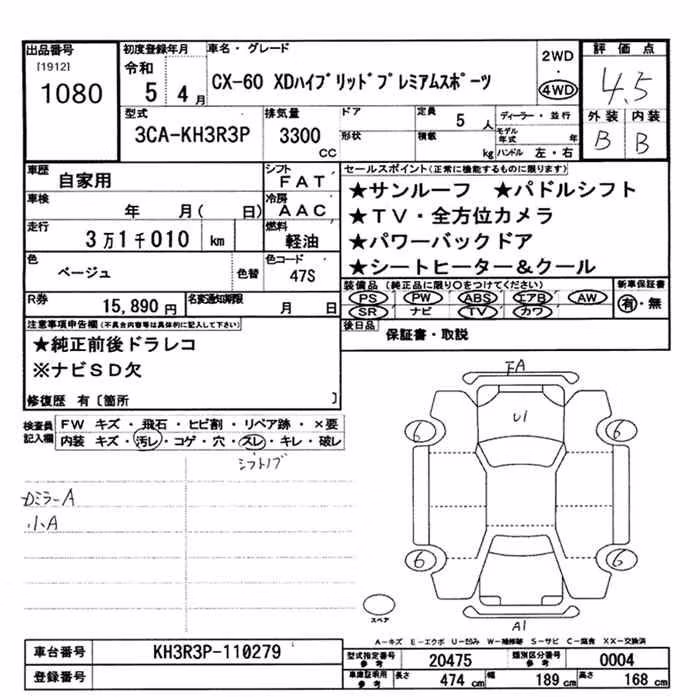 出品番号
[1912]
1080
初度登録年月
令和
5 4月
車名・グレード
CX-60 XDハイブリッドプレミアムスポーツ
2WD
・
4WD
評価点
4.5
外装 内装
B B
型式
3CA-KH3R3P
排気量
3300
CC
ドア
形状
定員
5人
積載
kg
ディーラー・並行
モデル年式 年
ハンドル 左・右
車歴
自家用
シフト
FAT
車検
年 月( 日)
冷房
AAC
走行
3万1千010 km
燃料
軽油
色
ベージュ
色替
色コード
47S
R券
15,890円
名変通知期限
月 日
セールスポイント(正常に機能するものに限ります)
★サンルーフ ★パドルシフト
★TV・全方位カメラ
★パワーバックドア
★シートヒーター&クール
装備品(純正品に限り○をつけてください)
PS PW ABS エアB AW
SR ナビ TV カワ
新車保証書
有・無
後日品
保証書・取説
注意事項申告欄(不具合内容等は具体的に記入して下さい)
★純正前後ドラレコ
※ナビSD欠
修復歴 有〔箇所 〕
検査員記入欄
FW キズ・飛石・ヒビ割・リペア跡・×要
内装 キズ・汚レ・コゲ・穴・スレ・キレ・破レ
シフトノブ
Dミラ-A
小A
FA
U1
6 6
6 6
A1
スペア
A-キズ E-エクボ U-凹み W-補修跡 S-サビ C-腐食 XX-交換済
車台番号
KH3R3P-110279
登録番号
型式指定番号
参考
20475
類別区分番号
参考
0004
車庫証明用
参考
長さ 474 cm 幅 189 cm 高さ 168 cm